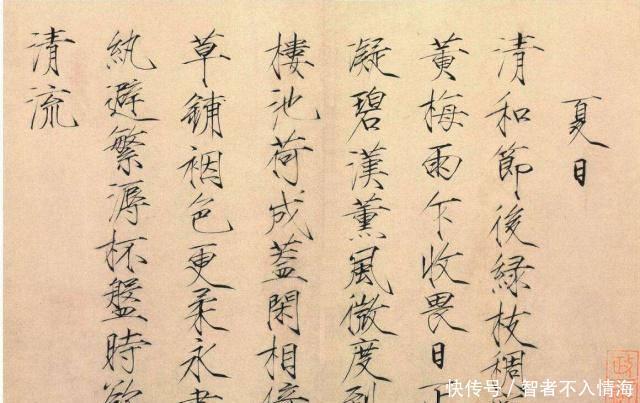 夏日
清和節後綠枝稠
黃梅雨乍收畏日
凝碧漢薰風微度到
樓池荷成蓋閑相
草鋪裀色更柔永
紈避繁溽杯盤時欲
清流
快传号／智者不入情海